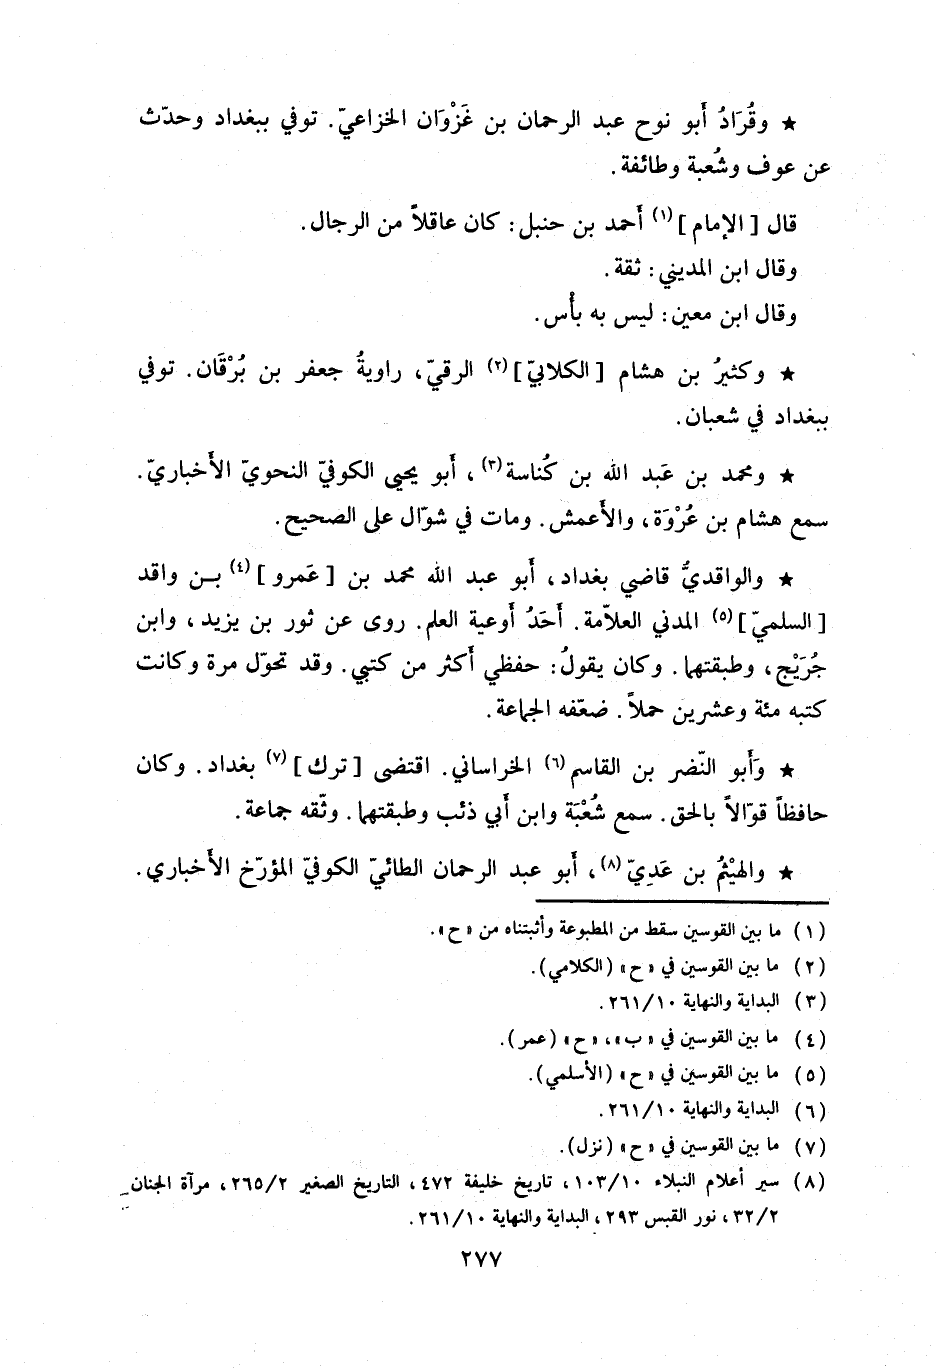 ★ وقُرَادُ أَبو نوح عبد الرحمان بن غَزْوَان الخزاعيّ. توفي ببغداد وحدّث
عن عوف وشُعبة وطائفة.
قال [ الإمام ] (١) أَحمد بن حنبل: كان عاقلاً من الرجال.
وقال ابن المديني: ثقة.
وقال ابن معين: ليس به بأْس.
★ وكثيرُ بن هشام [ الكلابيّ ] (٢) الرقيّ، راويةُ جعفر بن بُرْقَان. توفي
ببغداد في شعبان.
★ ومحمد بن عَبد الله بن كُناسة (٣)، أَبو يحيى الكوفيّ النحويّ الأَخباريّ.
سمع هشام بن عُرْوَة، والأَعمش. ومات في شوّال على الصحيح.
★ والواقديُّ قاضي بغداد، أَبو عبد الله محمد بن [ عَمرو ] (٤) بـن واقد
[ السلميّ ] (٥) المدني العلاّمة. أَحَدُ أَوعية العلم. روى عن ثور بن يزيد، وابن
جُرَيْج، وطبقتهما. وكان يقولُ: حفظي أَكثر من كتبي. وقد تحوّل مرة وكانت
كتبه مئة وعشرين حملاً. ضعّفه الجماعة.
★ وَأَبو النّضر بن القاسم (٦) الخراساني. اقتضى [ ترك ] (٧) بغداد. وكان
حافظاً قوّالاً بالحق. سمع شُعْبَة وابن أَبي ذئب وطبقتهما. وثّقه جماعة.
★ والهيْثمُ بن عَدِيّ (٨)، أَبو عبد الرحمان الطائيّ الكوفيّ المؤرّخ الأَخباري.
(١) ما بين القوسين سقط من المطبوعة وأثبتناه من « ح ».
(٢) ما بين القوسين في « ح » (الكلامي).
(٣) البداية والنهاية ٢٦١/١٠.
(٤) ما بين القوسين في « ب »، « ح » (عمر).
(٥) ما بين القوسين في « ح » (الأسلمي).
(٦) البداية والنهاية ٢٦١/١٠.
(٧) ما بين القوسين في « ح » (نزل).
(٨) سير أعلام النبلاء ١٠٣/١٠، تاريخ خليفة ٤٧٢، التاريخ الصغير ٢٦٥/٢، مرآة الجنان
٣٢/٢، نور القبس ٢٩٣، البداية والنهاية ٢٦١/١٠.
٢٧٧